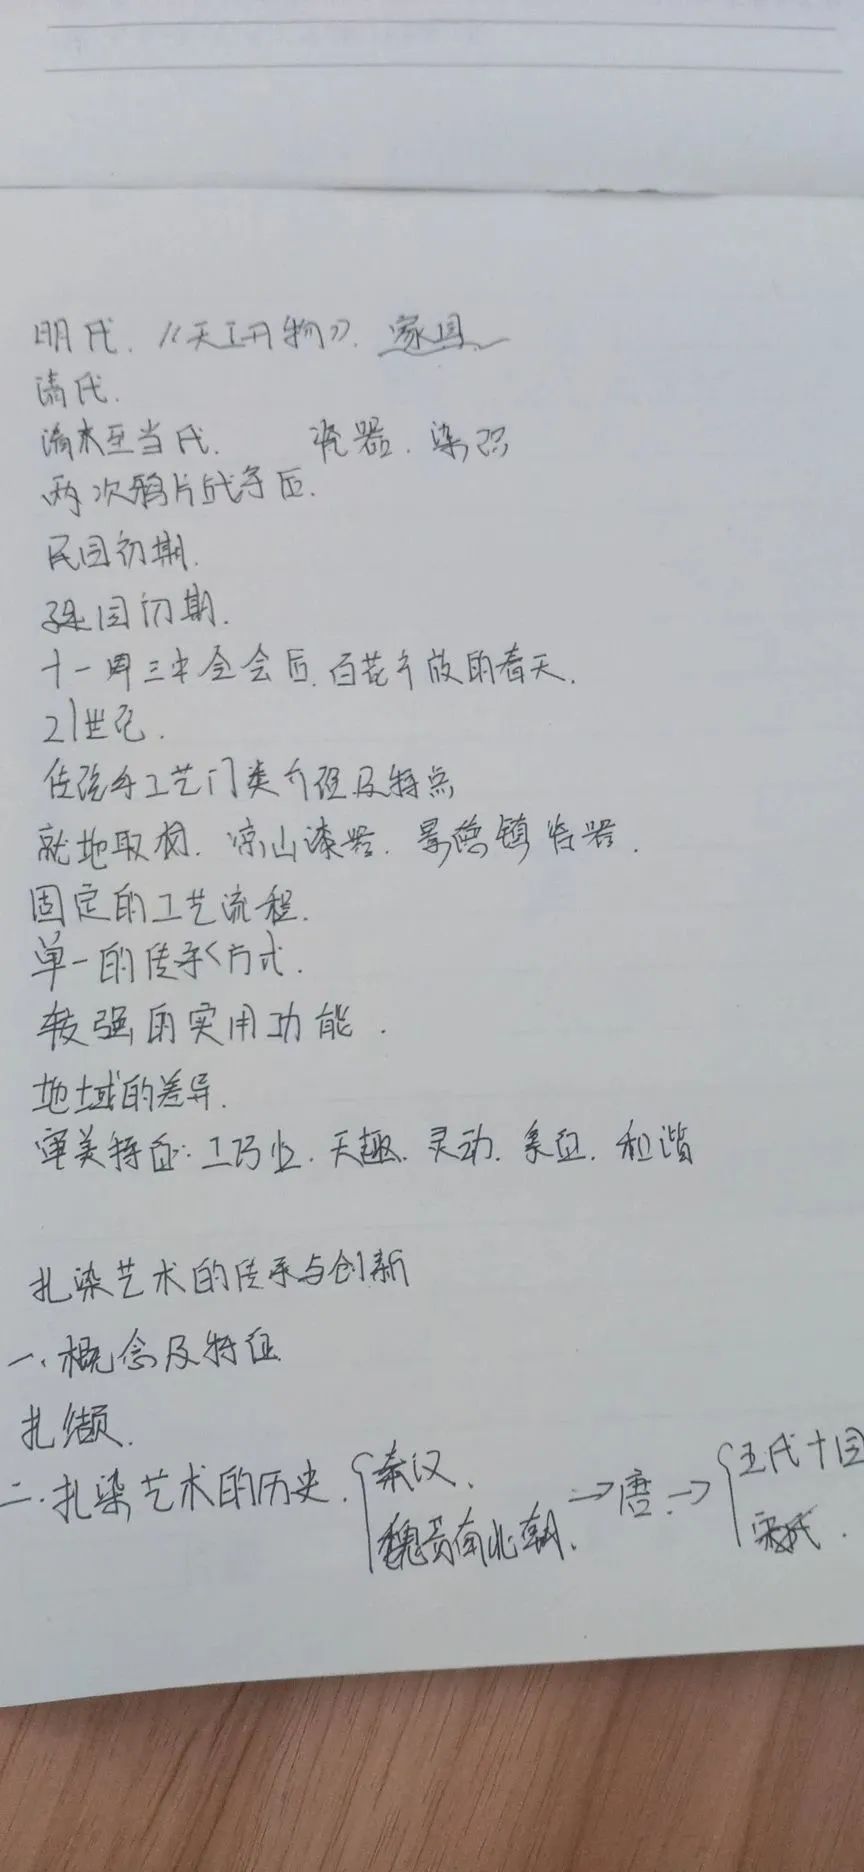 明代.《天工开物》.家具
清代.
清末至当代. 瓷器.染织
两次鸦片战争后.
民国初期.
建国初期.
十一届三中全会后.百花齐放的春天.
21世纪.
传统手工艺门类介绍及特点
就地取材.凉山漆器.景德镇瓷器.
固定的工艺流程.
单一的传承方式.
较强的实用功能.
地域的差异.
审美特征:工巧性.天趣.灵动.和谐
扎染艺术的传承与创新
一.概念及特征
扎缬.
二.扎染艺术的历史.
秦汉.
魏晋南北朝.
→唐.→
五代十国
宋代.